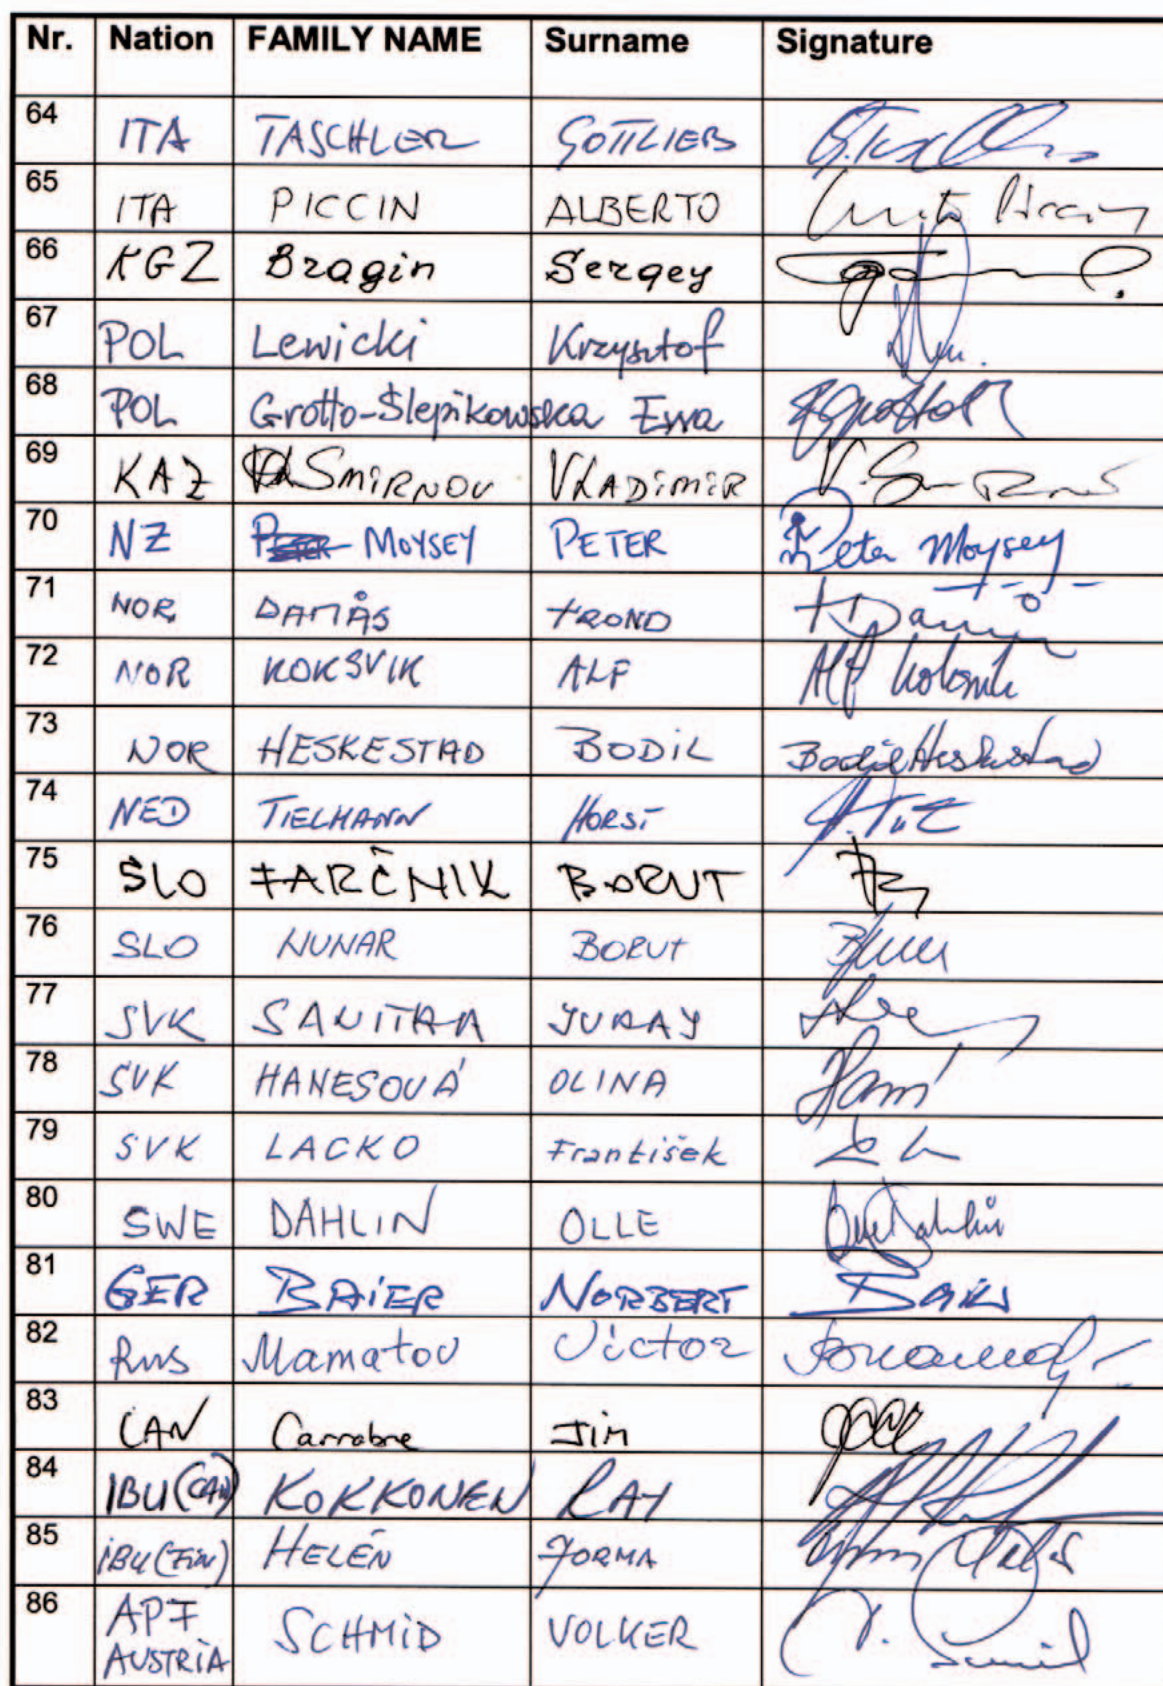 Nr. Nation FAMILY NAME Surname Signature
64 ITA TASCHLER GOTTLIEB
65 ITA PICCIN ALBERTO
66 KGZ Bragin Sergey
67 POL Lewicki Krzysztof
68 POL Grotto-Ślepikowska Ewa
69 KAZ SMIRNOV VLADIMIR
70 NZ MOYSEY PETER Peter Moysey
71 NOR DAMÅS TROND
72 NOR KOKSVIK ALF Alf
73 NOR HESKESTAD BODIL Bodil Heskestad
74 NED TIELMANN HORST
75 SLO FARČNIK BORUT
76 SLO NUNAR BORUT
77 SVK SANITRA JURAJ
78 SVK HANESOVÁ OLINA
79 SVK LACKO František
80 SWE DAHLIN OLLE
81 GER BAIER NORBERT
82 Rus Mamatov Victor
83 CAN Carrabre Jim
84 IBU (CAN) KOKKONEN RAY
85 IBU (FIN) HELÉN JORMA
86 APF AUSTRIA SCHMID VOLKER